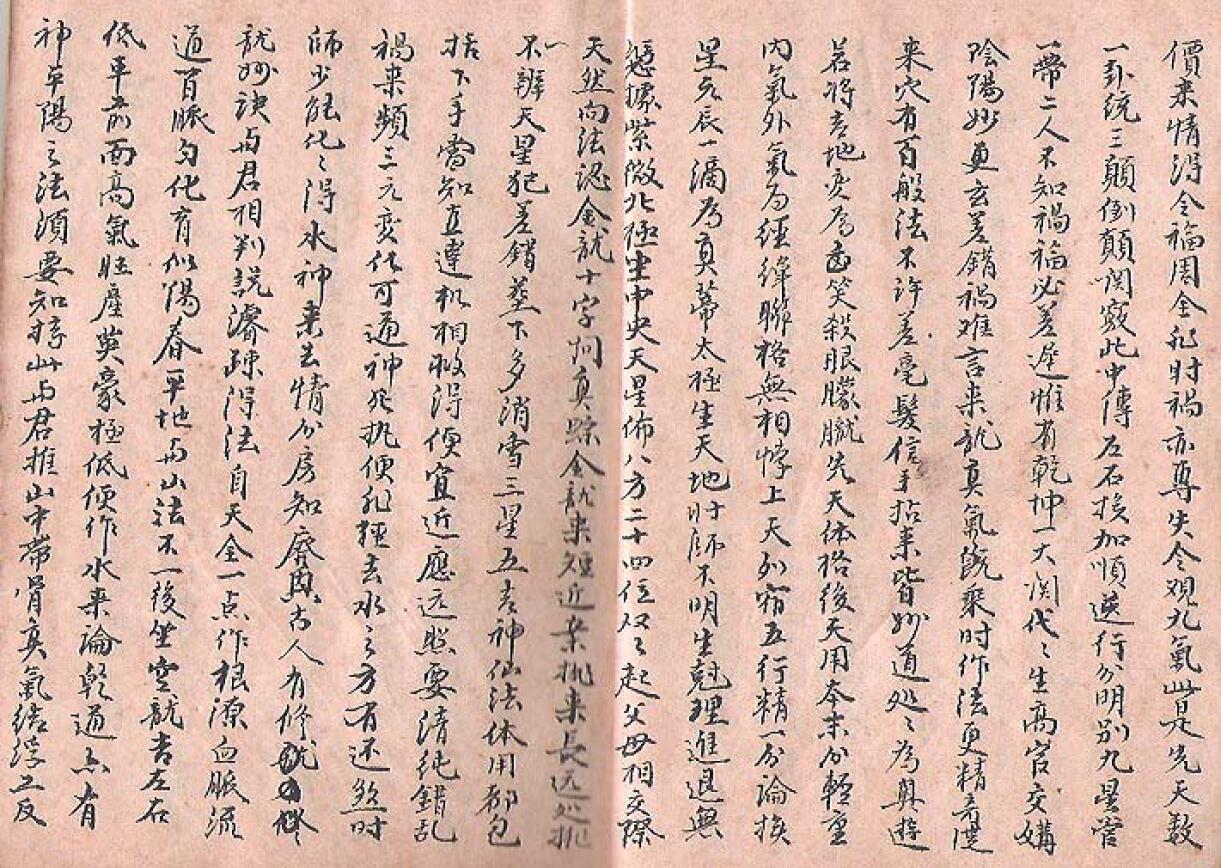 價来情得令福周全死时禍亦尊失令观元氣此是先天数
一卦統三顛倒顛関竅此中傳左右挨加順逆行分明別九星當
一帶二人不知禍福必差遲惟有乾坤一大関代々生高官交媾
陰陽妙更玄差錯禍难言来龙真氣既聚时作法更精
来穴有百般法不许差毫髮信手拈来皆妙道处々為真遊
若将吉地变為凶笑殺眼朦朧先天体格後天用本末分輕重
内氣外氣為經緯聯格無相悖上天列宿五行精一分論挨
星元辰一滴為真蒂太極生天地时師不明生尅理進退無
憑據紫微北極生中央天星佈八方二十四位双々起父母相交際
天然向法認金龙十字问真踪金龙来短近来挑来長远处挑
不辨天星犯差錯葬下多消雪三星五吉神仙法体用都包
括下手當知直達机相救得便宜近應远照要清純錯乱
禍来頻三元变化可通神死执便死煙去水之方有还然时
師少能化之得水神来去情分房知廢興古人有修龙
龙妙诀与君相判説濬疎得法自天全一点作根源血脈流
通百脈匀化育似陽春平地与山法不一後坐空龙吉左右
低平前面高氣旺產英豪極低便作水来論乾道点有
神平陽之法須要知持此与君推山中帶骨真氣結浮土反